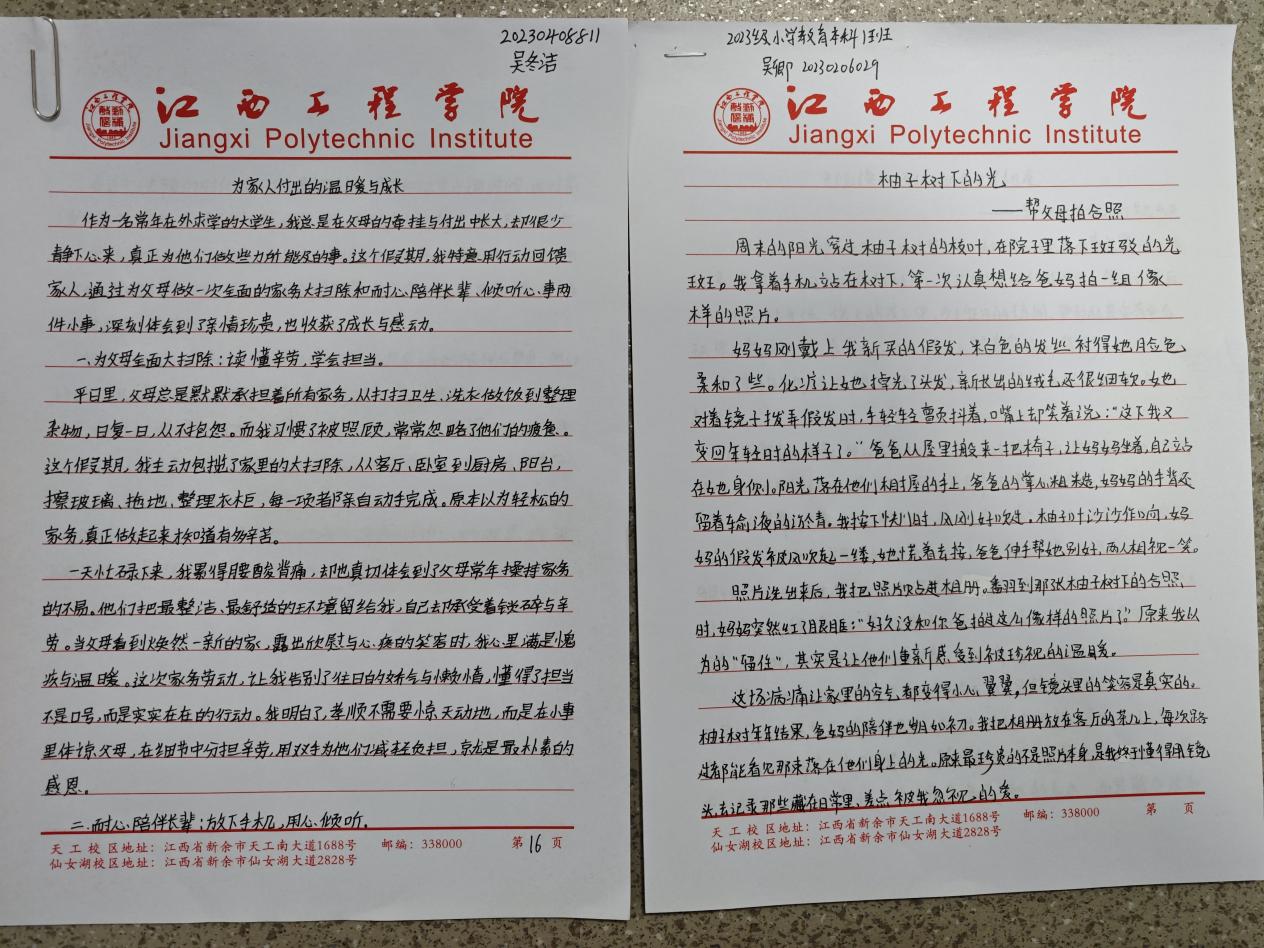 20230408811
吴冬洁
江西工程学院
Jiangxi Polytechnic Institute
为家人付出的温暖与成长
作为一名常年在外求学的大学生，我总是在父母的牵挂与付出中长大，却很少
静下心来，真正为他们做些力所能及的事。这个假期，我特意用行动回馈
家人，通过为父母做一次全面的家务大扫除和耐心陪伴长辈、倾听心事两
件小事，深刻体会到了亲情珍贵，也收获了成长与感动。
一、为父母全面大扫除：读懂辛劳，学会担当。
平日里，父母总是默默承担着所有家务，从打扫卫生、洗衣做饭到整理
杂物，日复一日，从不抱怨。而我习惯了被照顾，常常忽略了他们的疲惫。
这个假期，我主动包揽了家里的大扫除，从客厅、卧室到厨房、阳台，
擦玻璃、拖地、整理衣柜，每一项都亲自动手完成。原本以为轻松的
家务，真正做起来才知道有多辛苦。
一天忙碌下来，我累得腰酸背痛，却也真切体会到了父母常年操持家务
的不易。他们把最整洁、最舒适的环境留给我，自己却承受着琐碎与辛
劳。当父母看到焕然一新的家，露出欣慰与心疼的笑容时，我心里满是愧
疚与温暖。这次家务劳动，让我告别了往日的娇气与懒惰，懂得了担当
不是口号，而是实实在在的行动。我明白了，孝顺不需要惊天动地，而是在小事
里体谅父母，在细节中分担辛劳，用双手为他们减轻负担，就是最朴素的
感恩。
二、耐心陪伴长辈：放下手机，用心倾听。
天工校区地址：江西省新余市天工南大道1688号 邮编：338000 第16页
仙女湖校区地址：江西省新余市仙女湖大道2828号
2023级小学教育本科1班
吴卿 20230206029
江西工程学院
Jiangxi Polytechnic Institute
柚子树下的光
——帮父母拍合照
周末的阳光穿过柚子树的枝叶，在院子里落下斑驳的光
斑。我拿着手机站在树下，第一次认真想给爸妈拍一组像
样的照片。
妈妈刚戴上我新买的假发，米白色的发丝衬得她脸色
柔和了些。化疗让她掉光了头发，新长出的绒毛还很细软。她
对着镜子拨弄假发时，手轻轻颤抖着，嘴上却笑着说：“这下我又
变回年轻时的样子了。”爸爸从屋里搬来一把椅子，让妈妈坐着，自己站
在她身侧。阳光落在他们相握的手上，爸爸的掌心粗糙，妈妈的手背还
留着输液的淤青。我按下快门时，风刚好吹过。柚子叶沙沙作响，妈
妈的假发被风吹起一缕，她慌着去按，爸爸伸手帮她别好，两人相视一笑。
照片洗出来后，我把照片贴进相册。翻到那张柚子树下的合照
时，妈妈突然红了眼眶：“好久没和你爸拍这么像样的照片了。”原来我以
为的“留住”，其实是让他们重新感受到被珍视的温暖。
这场病痛让家里的空气都变得小心翼翼，但镜头里的笑容是真实的。
柚子树年年结果，爸妈的陪伴也岁岁如初。我把相册放在客厅的茶几上，每次路
过都能看见那束落在他们身上的光。原来最珍贵的不是照片本身，是我终于懂得用镜
头，去记录那些藏在日常里、差点被我忽视的爱。
天工校区地址：江西省新余市天工南大道1688号 邮编：338000 第 页
仙女湖校区地址：江西省新余市仙女湖大道2828号